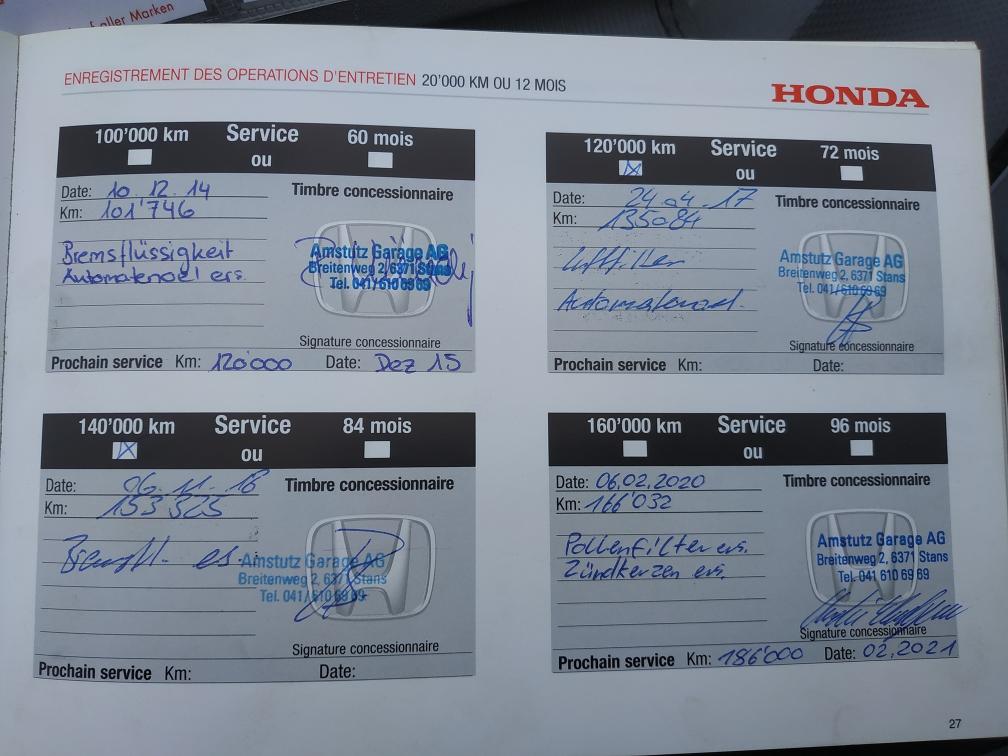 aller Marken
ENREGISTREMENT DES OPERATIONS D'ENTRETIEN 20'000 KM OU 12 MOIS
HONDA
100'000 km Service 60 mois
ou
Date: 10.12.14 Timbre concessionnaire
Km: 101'746
Bremsflüssigkeit
Automatenoel ers.
Amstutz Garage AG
Breitenweg 2, 6371 Stans
Tel. 041/610 69 69
Signature concessionnaire
Prochain service Km: 120'000 Date: Dez 15
120'000 km Service 72 mois
ou
Date: 24.04.17 Timbre concessionnaire
Km: 135084
Luftfilter
Automatenoel.
Amstutz Garage AG
Breitenweg 2, 6371 Stans
Tel. 041/610 69 69
Signature concessionnaire
Prochain service Km: Date:
140'000 km Service 84 mois
ou
Date: 06.11.18 Timbre concessionnaire
Km: 153'325
Bremsfl. es.
Amstutz Garage AG
Breitenweg 2, 6371 Stans
Tel. 041/610 69 69
Signature concessionnaire
Prochain service Km: Date:
160'000 km Service 96 mois
ou
Date: 06.02.2020 Timbre concessionnaire
Km: 166'032
Pollenfilter ers.
Zündkerzen ers.
Amstutz Garage AG
Breitenweg 2, 6371 Stans
Tel. 041 610 69 69
Signature concessionnaire
Prochain service Km: 186'000 Date: 02.2021
27